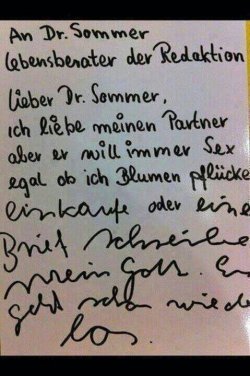 An Dr. Sommer
Lebensberater der Redaktion
Lieber Dr. Sommer,
ich liebe meinen Partner
aber er will immer Sex
egal ob ich Blumen pflücke
einkaufe oder eine
Brief schreibe
Mein Gott. Er
geht schon wiede
los.